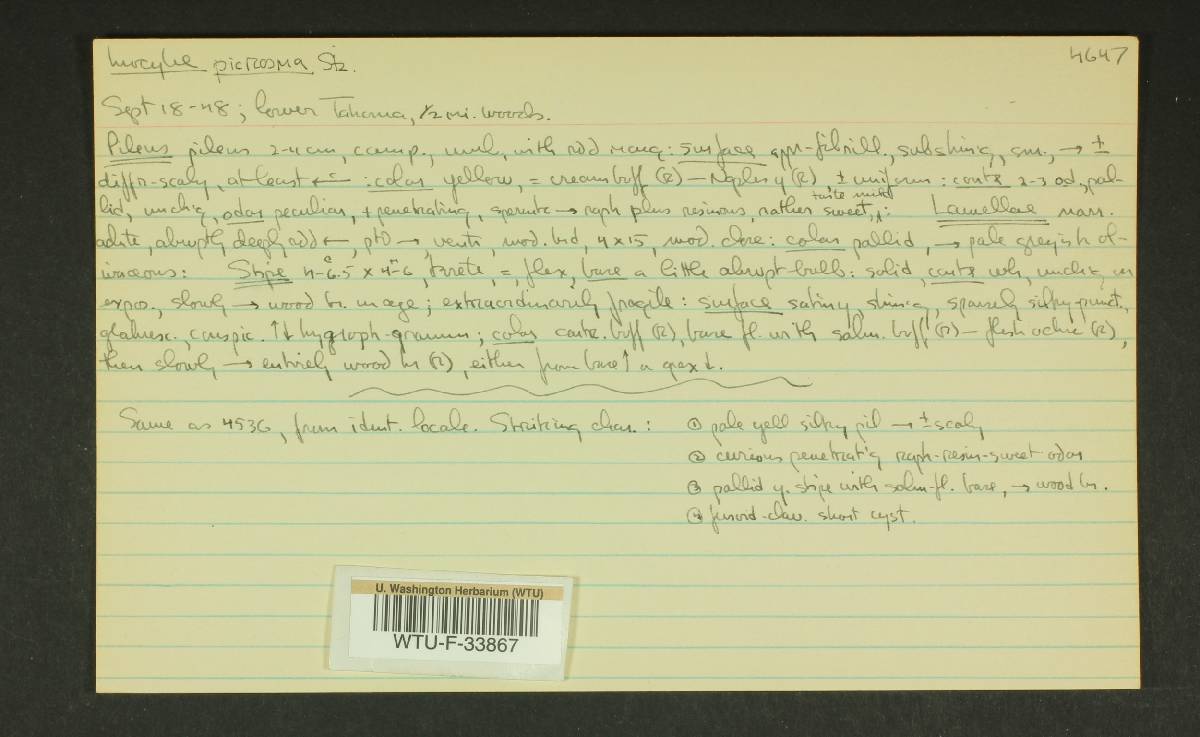 Inocybe picrosma Stz. 4647
Sept 18-48; lower Tahoma, 1/2 mi. woods.
Pileus pileus 2-4 cm, camp., umb, with rdd marg: surface appr-fibrill., subshing, sm., → ±
diffr-scaly, at least ← : color yellow, = cream buff (R) – Naples y (R), ± uniform: contx 2-3 od, pal-
lid, unchg, odor peculiar, + penetrating, spermtc → raph plus resinous, rather sweet, taste mild: Lamellae narr.
adnte, abruptly deeply rdd ←, ptd →, ventr, mod. brd, 4 x 15, mod. close: color pallid, → pale greyish ol-
ivaceous: Stipe 4-6.5 x 4-6, terete, =, flex, base a little abrupt-bulb: solid, contx wh, unchg on
expos., slowly → wood br. in age; extraordinarily fragile: surface satiny, shing, sparsely silky-punct,
glabresc., conspic. ↑↓ hygroph-; color cartr. buff (R), base fl. with salm. buff (R) – flesh ochre (R),
then slowly → entirely wood br (R), either from base ↑ or apex ↓.
Same as 4536, from ident. locale. Striking char.:
① pale yell silky pil → ± scaly
② curious penetrat'g raph-resin-sweet odor
③ pallid y. stipe with salm-fl. base, → wood br.
④ fusoid-clav. short cyst.
U. Washington Herbarium (WTU)
WTU-F-33867